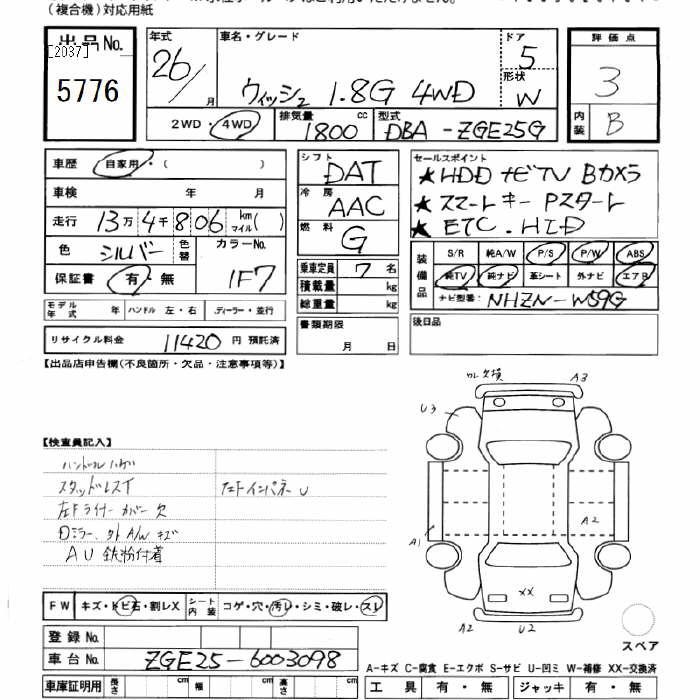 (複合機)対応用紙
出品No.
[2037]
5776
年式 26/ 月
車名・グレード
ウィッシュ 1.8G 4WD
ドア 5
形状 W
評価点 3
内装 B
2WD・4WD
排気量 1800 cc
型式 DBA-ZGE25G
車歴 自家用・( )
車検 年 月
走行 13万4千806 km マイル( )
色 シルバー 色替 カラーNo. 1F7
保証書 有・無
モデル年式 年 ハンドル 左・右 ディーラー・並行
リサイクル料金 11420 円 預託済
シフト DAT
冷房 AAC
燃料 G
乗車定員 7 名
積載量 kg
総重量 kg
書類期限 月 日
セールスポイント
★HDDナビTV Bカメラ
★スマートキー Pスタート
★ETC.HID
装備品
S/R 純A/W P/S P/W ABS
純TV 純ナビ 革シート 外ナビ エアB
ナビ型番: NHZN-W59G
後日品
【出品店申告欄(不良箇所・欠品・注意事項等)】
欠損 A3
U3
【検査員記入】
スタッドレスT
左Fインパネ U
左Fライナー カバー 欠
Dミラー、外A/W キズ
AU 鉄粉付着
A1
A2
XX
A2 U2
FW キズ・トビ石・割レX シート内装 コゲ・穴・汚レ・シミ・破レ・スレ
登録No.
車台No. ZGE25-6003098
スペア
A-キズ C-腐食 E-エクボ S-サビ U-凹ミ W-補修 XX-交換済
車庫証明用 長さ cm 幅 cm 高さ cm
工具 有・無 ジャッキ 有・無